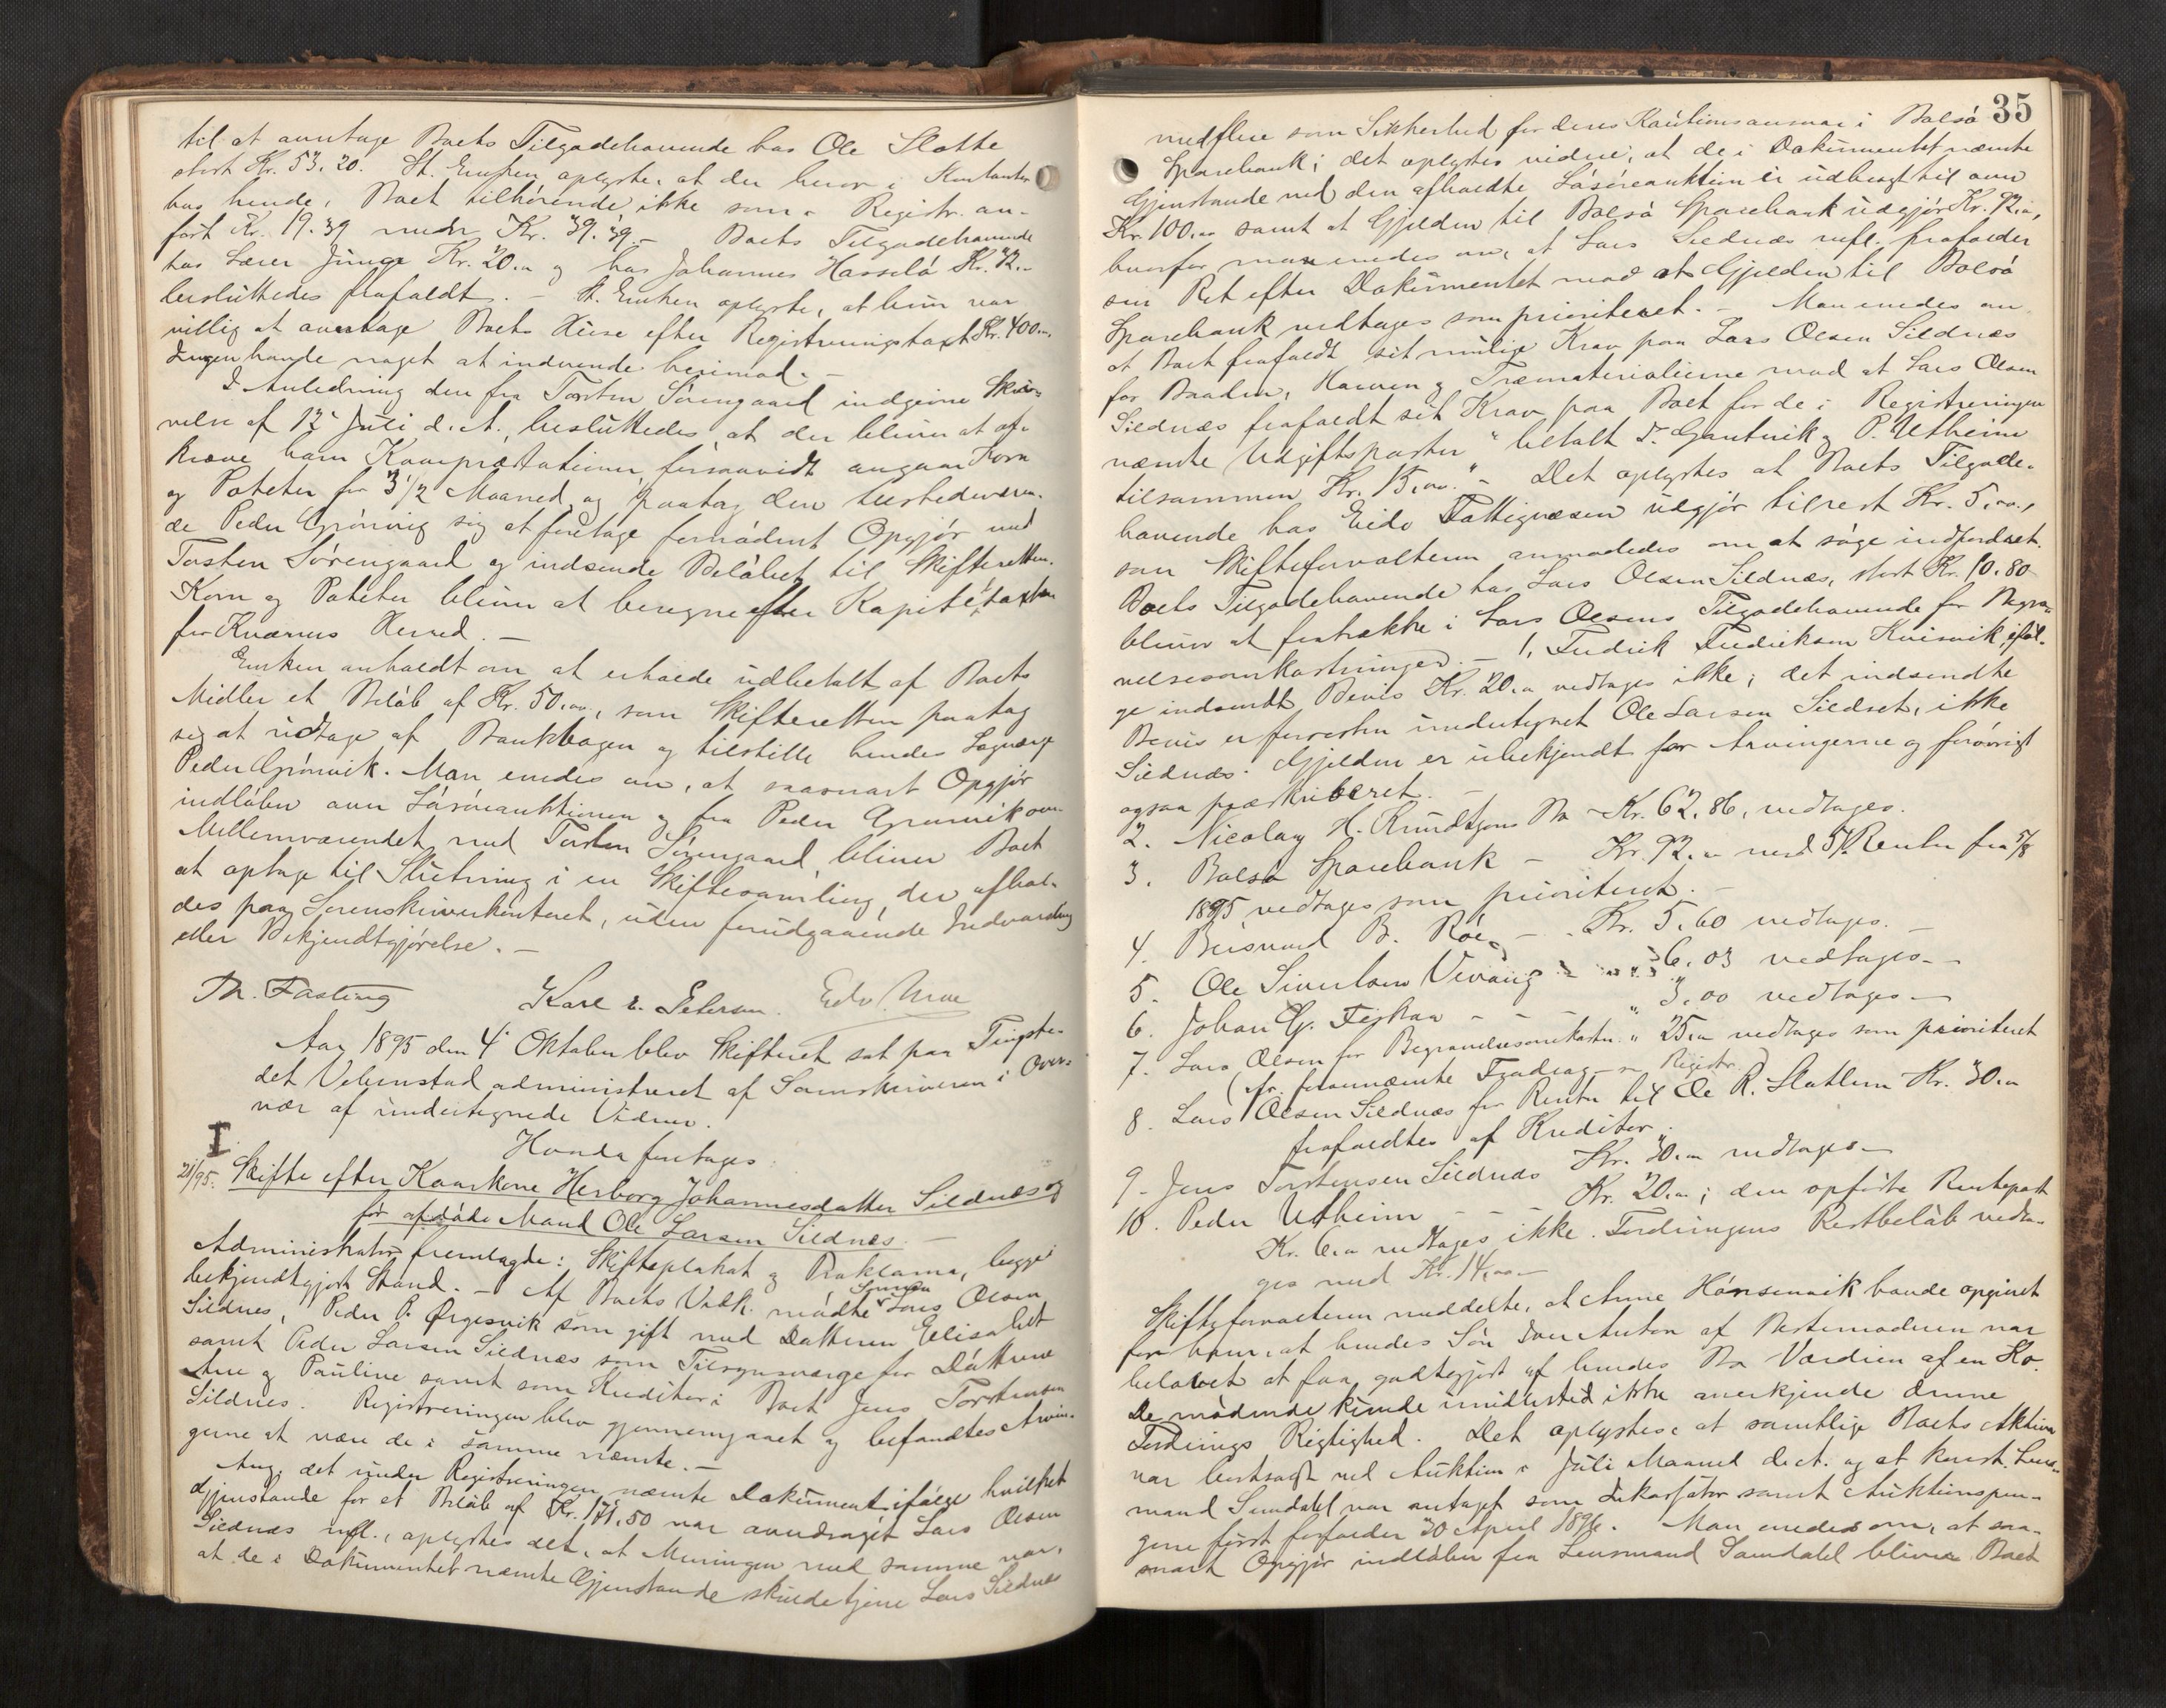 til at anntage Boets Tilgodehavende hos Ole Slatte
stort Kr. 53.20. St. Enken oplyste, at der beror i Kontanter
hos hende, Boet tilhörende ikke som i Registr. an-
fört Kr. 19.39 men Kr. 39.39. – Boets Tilgodehavende
hos Lærer Junge Kr. 20.00 og hos Johannes Hasselö Kr. 12.-
besluttedes frafaldt. – St. Enken oplyste, at hun var
villig at overtage Boets Huse efter Registreringstaxt Kr. 400.00.
Ingen havde noget at indvende herimod. –
I Anledning den fra Torsten Sörengaard indgivne Skri-
velse af 12' Juli d. A., besluttedes, at der bliver at af-
kræve ham Kaarprætationer, forsaavidt angaar Korn
og Poteter for 3 1/2 Maaned, og paatog den tilstedeværen-
de Peder Grönvig sig at foretage fornödent Opgjör med
Torsten Sörengaard og indsende Belöbet til Skifteretten.
Korn og Poteter bliver at beregne efter Kapitelstaxten
for Kværnes Herred. –
Enken anholdt om at erholde udbetalt af Boets
Midler et Belöb af Kr. 50.00, som Skifteretten paatog
sig at udtage af Bankbogen og tilstille hendes Lagværge
Peder Grönvik. Man enedes om, at saasnart Opgjör
indlöber over Lösöreauktionen og fra Peder Grönvik om
Mellemværendet med Torsten Sörengaard, bliver Boet
at optage til Slutning i en Skiftesamling, der afhol-
des paa Sorenskriverkontoret, uden forudgaaende Indvarsling
eller Bekjendtgjörelse. –
Th. Fasting Karl E. Petersen. Edv.
Aar 1895 den 4' Oktober blev Skifteret sat paa Tingste-
det Vebenstad administreret af Sorenskriveren i Over-
vær af undertegnede Vidner.
Hvorda foretoges:
I
21/95. Skifte efter Kaarkone Herborg Johannesdatter Sildnes og
för afdöde Mand Ole Larsen Sildnes. –
Administrator fremlagde: Skifteplakat og Proklama, begge i
bekjendtgjort Stand. – Af Boets Vedk. mödte Sönnen Lars Olsen
Sildnes, Peder P. Ørgesvik som gift med Datteren Elisabet
samt Peder Larsen Sildnæs som Tilsynsværge for Döttrene
Ane og Pauline samt som Kreditor i Boet Jens Torstensen
Sildnes. Registreringen blev gjennemgaaet og befandtes Arvin-
gerne at være de i samme nævnte. –
Ang. det under Registreringen nævnte Dokument ifölge hvilket
Gjenstande for et Belöb af Kr. 171.50 var overdraget Lars Olsen
Sildnæs mfl., oplystes det, at Meningen med samme var,
at de i Dokumentet nævnte Gjenstande skulde tjene Lars Sildnes
35
medflere som Sikkerhed for deres Kautionsansvar i Bolsö
Sparebank; det oplystes videre, at de i Dokumentet nævnte
Gjenstande ved den afholdte Lösöreauktion er udbragt til over
Kr. 100.00 samt at Gjelden til Bolsö Sparebank udgjör Kr. 92.00,
hvorfor man enedes om, at Lars Sildnæs mfl. frafalder
sin Ret efter Dokumentet mod at Gjelden til Bolsö
Sparebank vedtages som prioriteret. – Man enedes om
at Boet frafaldt sit mulige Krav paa Lars Olsen Sildnæs
for Baaden, Harven og Træmaterialierne mod at Lars Olsen
Sildnæs frafaldt sit Krav paa Boet for de i Registreringen
nævnte Udgiftsposter "betalt T. Gautvik og P. Utheim
tilsammen Kr. 15.00." – Det oplystes at Boets Tilgode-
havende hos Eide Fattigvæsen udgjör tilrest Kr. 5.00,
som Skifteforvalteren anmodedes om at söge indfordret.
Boets Tilgodehavende hos Lars Olsen Sildnæs, stort Kr. 10.80
bliver at fratrække i Lars Olsens Tilgodehavende for Begra-
velsesomkostninger. – 1, Fredrik Fredriksen Kvisvik iföl-
ge indsendt Bevis Kr. 20.00 vedtages ikke; det indsendte
Bevis er forresten undertegnet Ole Larsen Sildset, ikke
Sildnæs. Gjelden er ubekjendt for Arvingerne og forövrigt
ogsaa præskriberet. –
2. Nicolay H. Knudtzons Bo – Kr. 62.86, vedtages.
3. Bolsö Sparebank – Kr. 92.00 med 5% Renter fra 5/8
1895 vedtages som prioriteret. –
4. Beisvand B. Röe, – – Kr. 5.60 vedtages. –
5. Ole Sivertsen Vevang – – " 36.03 vedtages. –
6. Johan G. Fiskaa – – – " 3.00 vedtages –
7. Lars Olsen for Begravelsesomkostn. " 25.00 vedtages som prioriteret
(cfr. forannævnte Fradrag – Registr.)
8. Lars Olsen Sildnæs for Renter til Ole R. Slatlem Kr. 30.00
frafaldtes af Kreditor.
9. Jens Torstensen Sildnæs Kr. 30.00 vedtages –
10. Peder Utheim – – Kr. 20.00; den opförte Rentepost
Kr. 6.00 vedtages ikke. Fordringens Restbelöb vedta-
ges med Kr. 14.00 –
Skifteforvalteren meddelte, at Anne Hönsenvik havde opgivet
for ham, at hendes Sön Iver Anton af Bestemoderen var
belovet at faa godtgjort af hendes Bo Værdien af en Ko.
De mödende kunde imidlertid ikke anerkjende denne
Fordrings Rigtighed. Det oplystes, at samtlige Boets Aktiva
var bortsolgt ved Auktion i Juli Maaned d. A. og at konst. Lens-
mand Sundahl var antaget som Inkassator samt Auktionspen-
gene först forfalder 30 April 1896. Man enedes om, at saa-
snart Opgjör indlöber fra Lensmand Sundahl bliver Boet